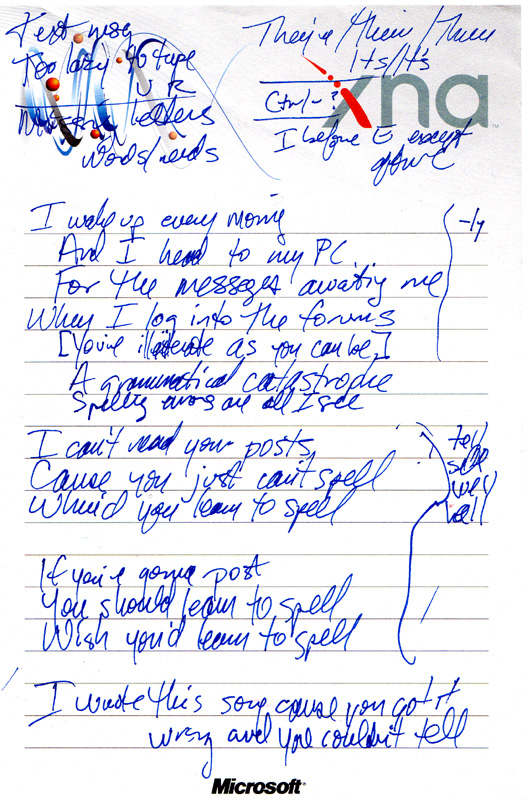 Text msg
Too lazy to type
U R
letters
Words/nerds
They're/Their/There
Its/It's
Ctrl - ?
I before E except
after C
xna
I wake up every morning
And I head to my PC
For the messages awaiting me
When I log into the forums
[You're illiterate as you can be]
A grammatical catastrophe
Spelling errors are all I see
-ly
I can't read your posts
Cause you just can't spell
When'd you learn to spell
tell
sell
well
hell
If you're gonna post
You should learn to spell
Wish you'd learn to spell
I wrote this song cause you got it
wrong and you couldn't tell
Microsoft